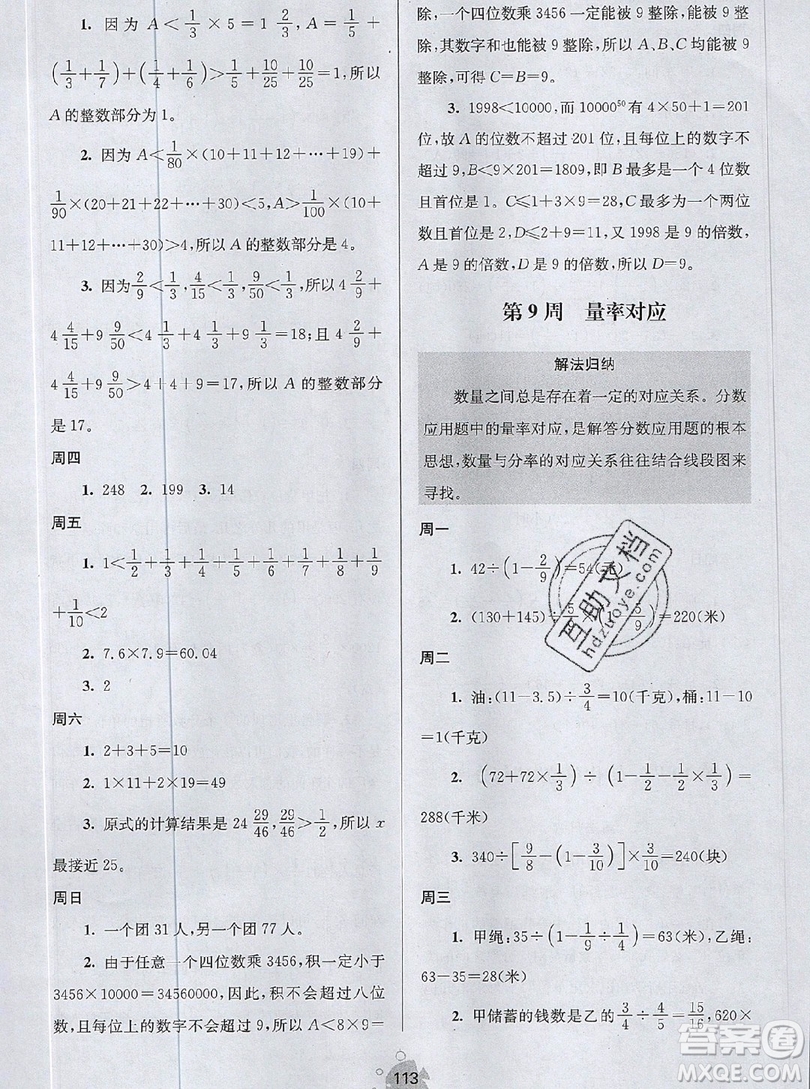 1. 因为 A<1/3×5=1 2/3, A=1/5+
(1/3+1/7)+(1/4+1/6)>1/5+10/25+10/25=1,所以
A 的整数部分为 1。
2. 因为 A<1/80×(10+11+12+…+19)+
1/90×(20+21+22+…+30)<5,A>1/100×(10+
11+12+…+30)>4,所以 A 的整数部分是 4。
3. 因为 2/9<1/3,4/15<1/3,9/50<1/3,所以 4 2/9+
4 4/15+9 9/50<4 1/3+4 1/3+9 1/3=18;且 4 2/9+
4 4/15+9 9/50>4+4+9=17,所以 A 的整数部分
是 17。
周四
1. 248 2. 199 3. 14
周五
1. 1<1/2+1/3+1/4+1/5+1/6+1/7+1/8+1/9
+1/10<2
2. 7.6×7.9=60.04
3. 2
周六
1. 2+3+5=10
2. 1×11+2×22+3×…
3. 原式的计算结果是 24 29/46,29/46>1/2,所以 x
最接近 25。
周日
1. 一个团 31 人,另一个团 77 人。
2. 由于任意一个四位数乘 3456,积一定小于
3456×10000=34560000,因此,积不会超过八位
数,且每位上的数字不会超过 9,所以 A<8×9=
除,一个四位数乘 3456 一定能被 9 整除,能被 9 整
除,其数字和也能被 9 整除,所以 A、B、C 均能被 9
整除,可得 C=B=9。
3. 1998<10000,而 10000^50 有 4×50+1=201
位,故 A 的位数不超过 201 位,且每位上的数字不
超过 9,B⩽9×201=1809,即 B 最多是一个 4 位数
且首位是 1。C⩽1+3×9=28,C 最多为一个两位
数且首位是 2,D⩽2+9=11,又 1998 是 9 的倍数,
A 是 9 的倍数,所以 B、C、D 都是 9 的倍数,D=9。
第 9 周 量率对应
解法归纳
数量之间总是存在着一定的对应关系。分数
应用题中的量率对应,是解答分数应用题的根本
思想,数量与分率的对应关系往往结合线段图来
寻找。
周一
1. 42÷(1-2/9)=54(元)
2. (130+145)÷=220(米)
周二
1. 油:(11-3.5)÷3/4=10(千克),桶:11-10
=1(千克)
2. (72+72×1/3)÷(1-1/2-1/2×1/3)=
288(千米)
3. 340÷[9/8-(1+3/10)×3/10]=240(块)
周三
1. 甲绳:35÷(1-1/9÷1/4)=63(米),乙绳:
63-35=28(米)
2. 甲储蓄的钱数是乙的 3/4÷4/5=15/16,620×
互助文档
hdzuoye.com
答案卷
MXQE.COM
113